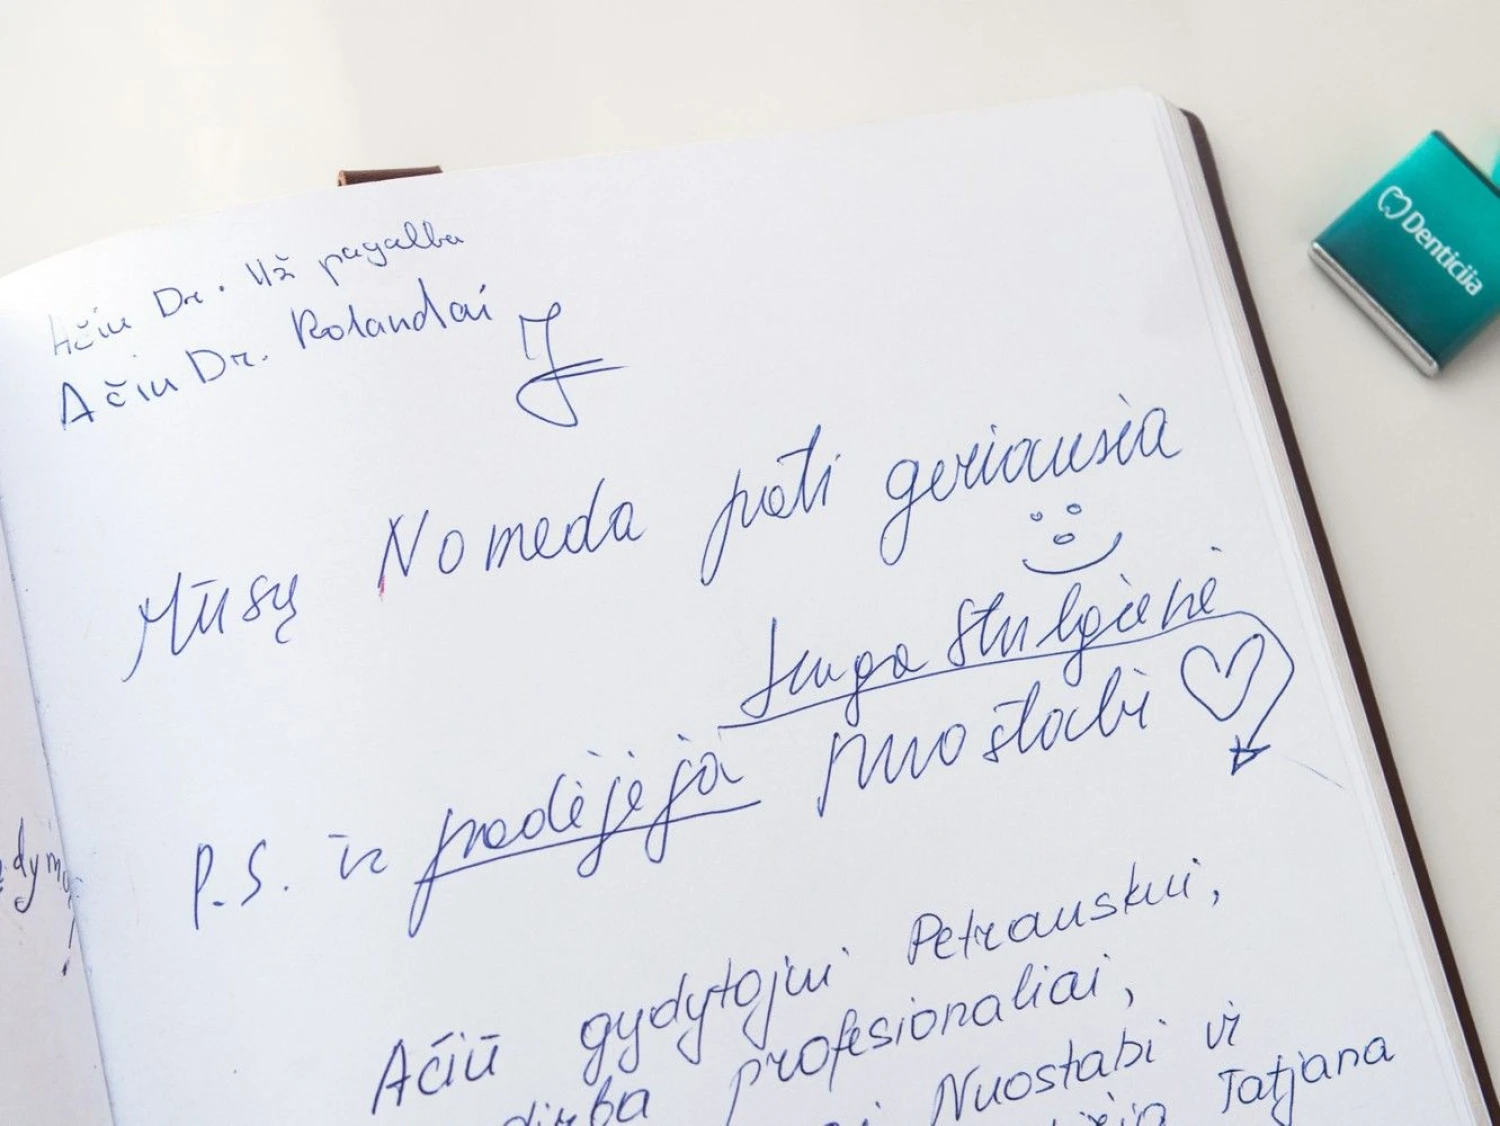 Ačiu Dr. Už pagalba
Ačiu Dr. Rolandai
Mūsų Nomeda pati geriausia
Inga Stulgienė
P.S. ir padėjėja nuostabi
Ačiū gydytojui Petrauskui,
dirba profesionaliai,
Nuostabi ir
Tatjana
Denticija